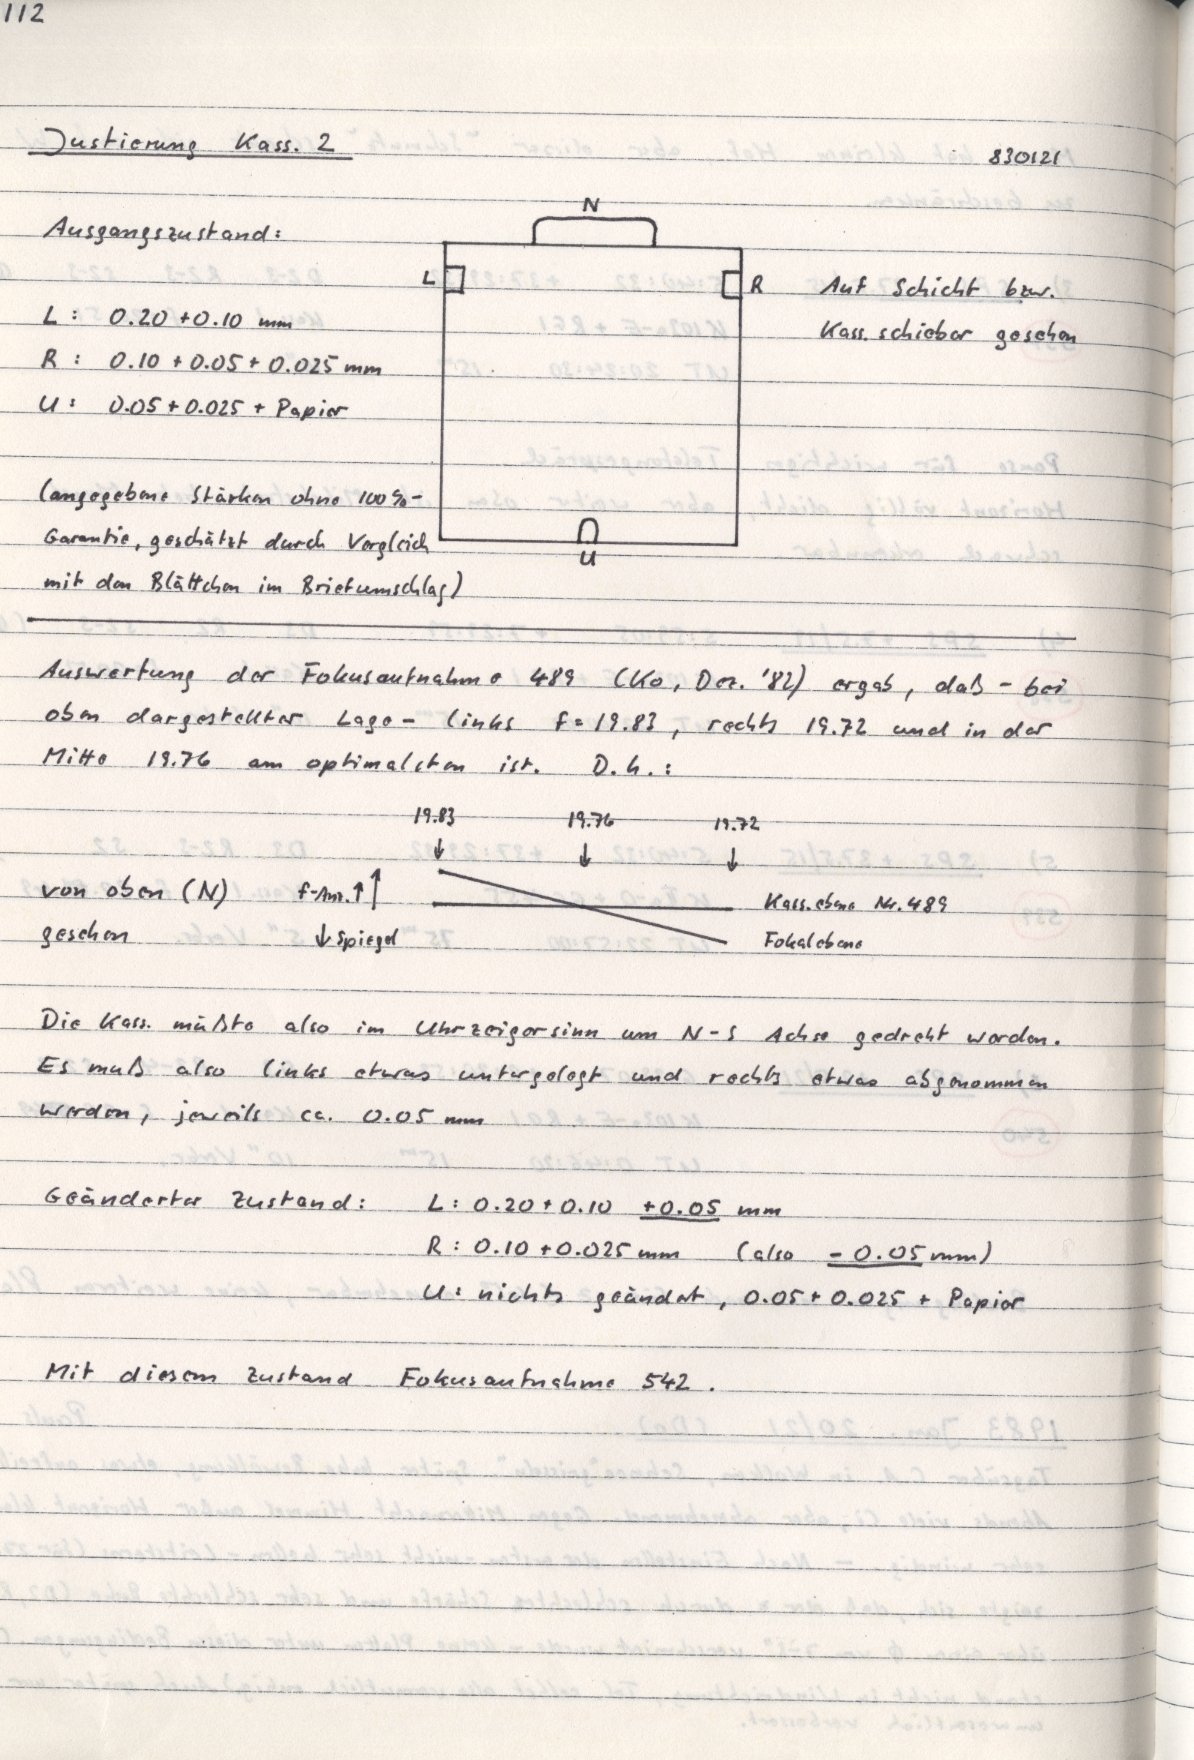 112
Justierung Kass. 2
830121
Ausgangszustand:
N
L
R
Auf Schicht bzw.
Kass. schieber gesehen
L: 0.20 + 0.10 mm
R: 0.10 + 0.05 + 0.025 mm
U: 0.05 + 0.025 + Papier
(angegebene Stärken ohne 100%-
Garantie, geschätzt durch Vergleich
mit den Blättchen im Briefumschlag)
U
Auswertung der Fokusaufnahme 489 (Ko, Dez. '82) ergab, daß - bei
oben dargestellter Lage - links f = 19.83, rechts 19.72 und in der
Mitte 19.76 am optimalsten ist. D.h.:
19.83 19.76 19.72
↓ ↓ ↓
von oben (N) f-Anz. ↑ ↑
Kass. ebene Nr. 489
gesehen ↓ Spiegel
Fokalebene
Die Kass. müßte also im Uhrzeigersinn um N-S Achse gedreht werden.
Es muß also links etwas untergelegt und rechts etwas abgenommen
werden, jeweils ca. 0.05 mm
Geänderter Zustand: L: 0.20 + 0.10 +0.05 mm
R: 0.10 + 0.025 mm (also - 0.05 mm)
U: nichts geändert, 0.05 + 0.025 + Papier
Mit diesem Zustand Fokusaufnahme 542.